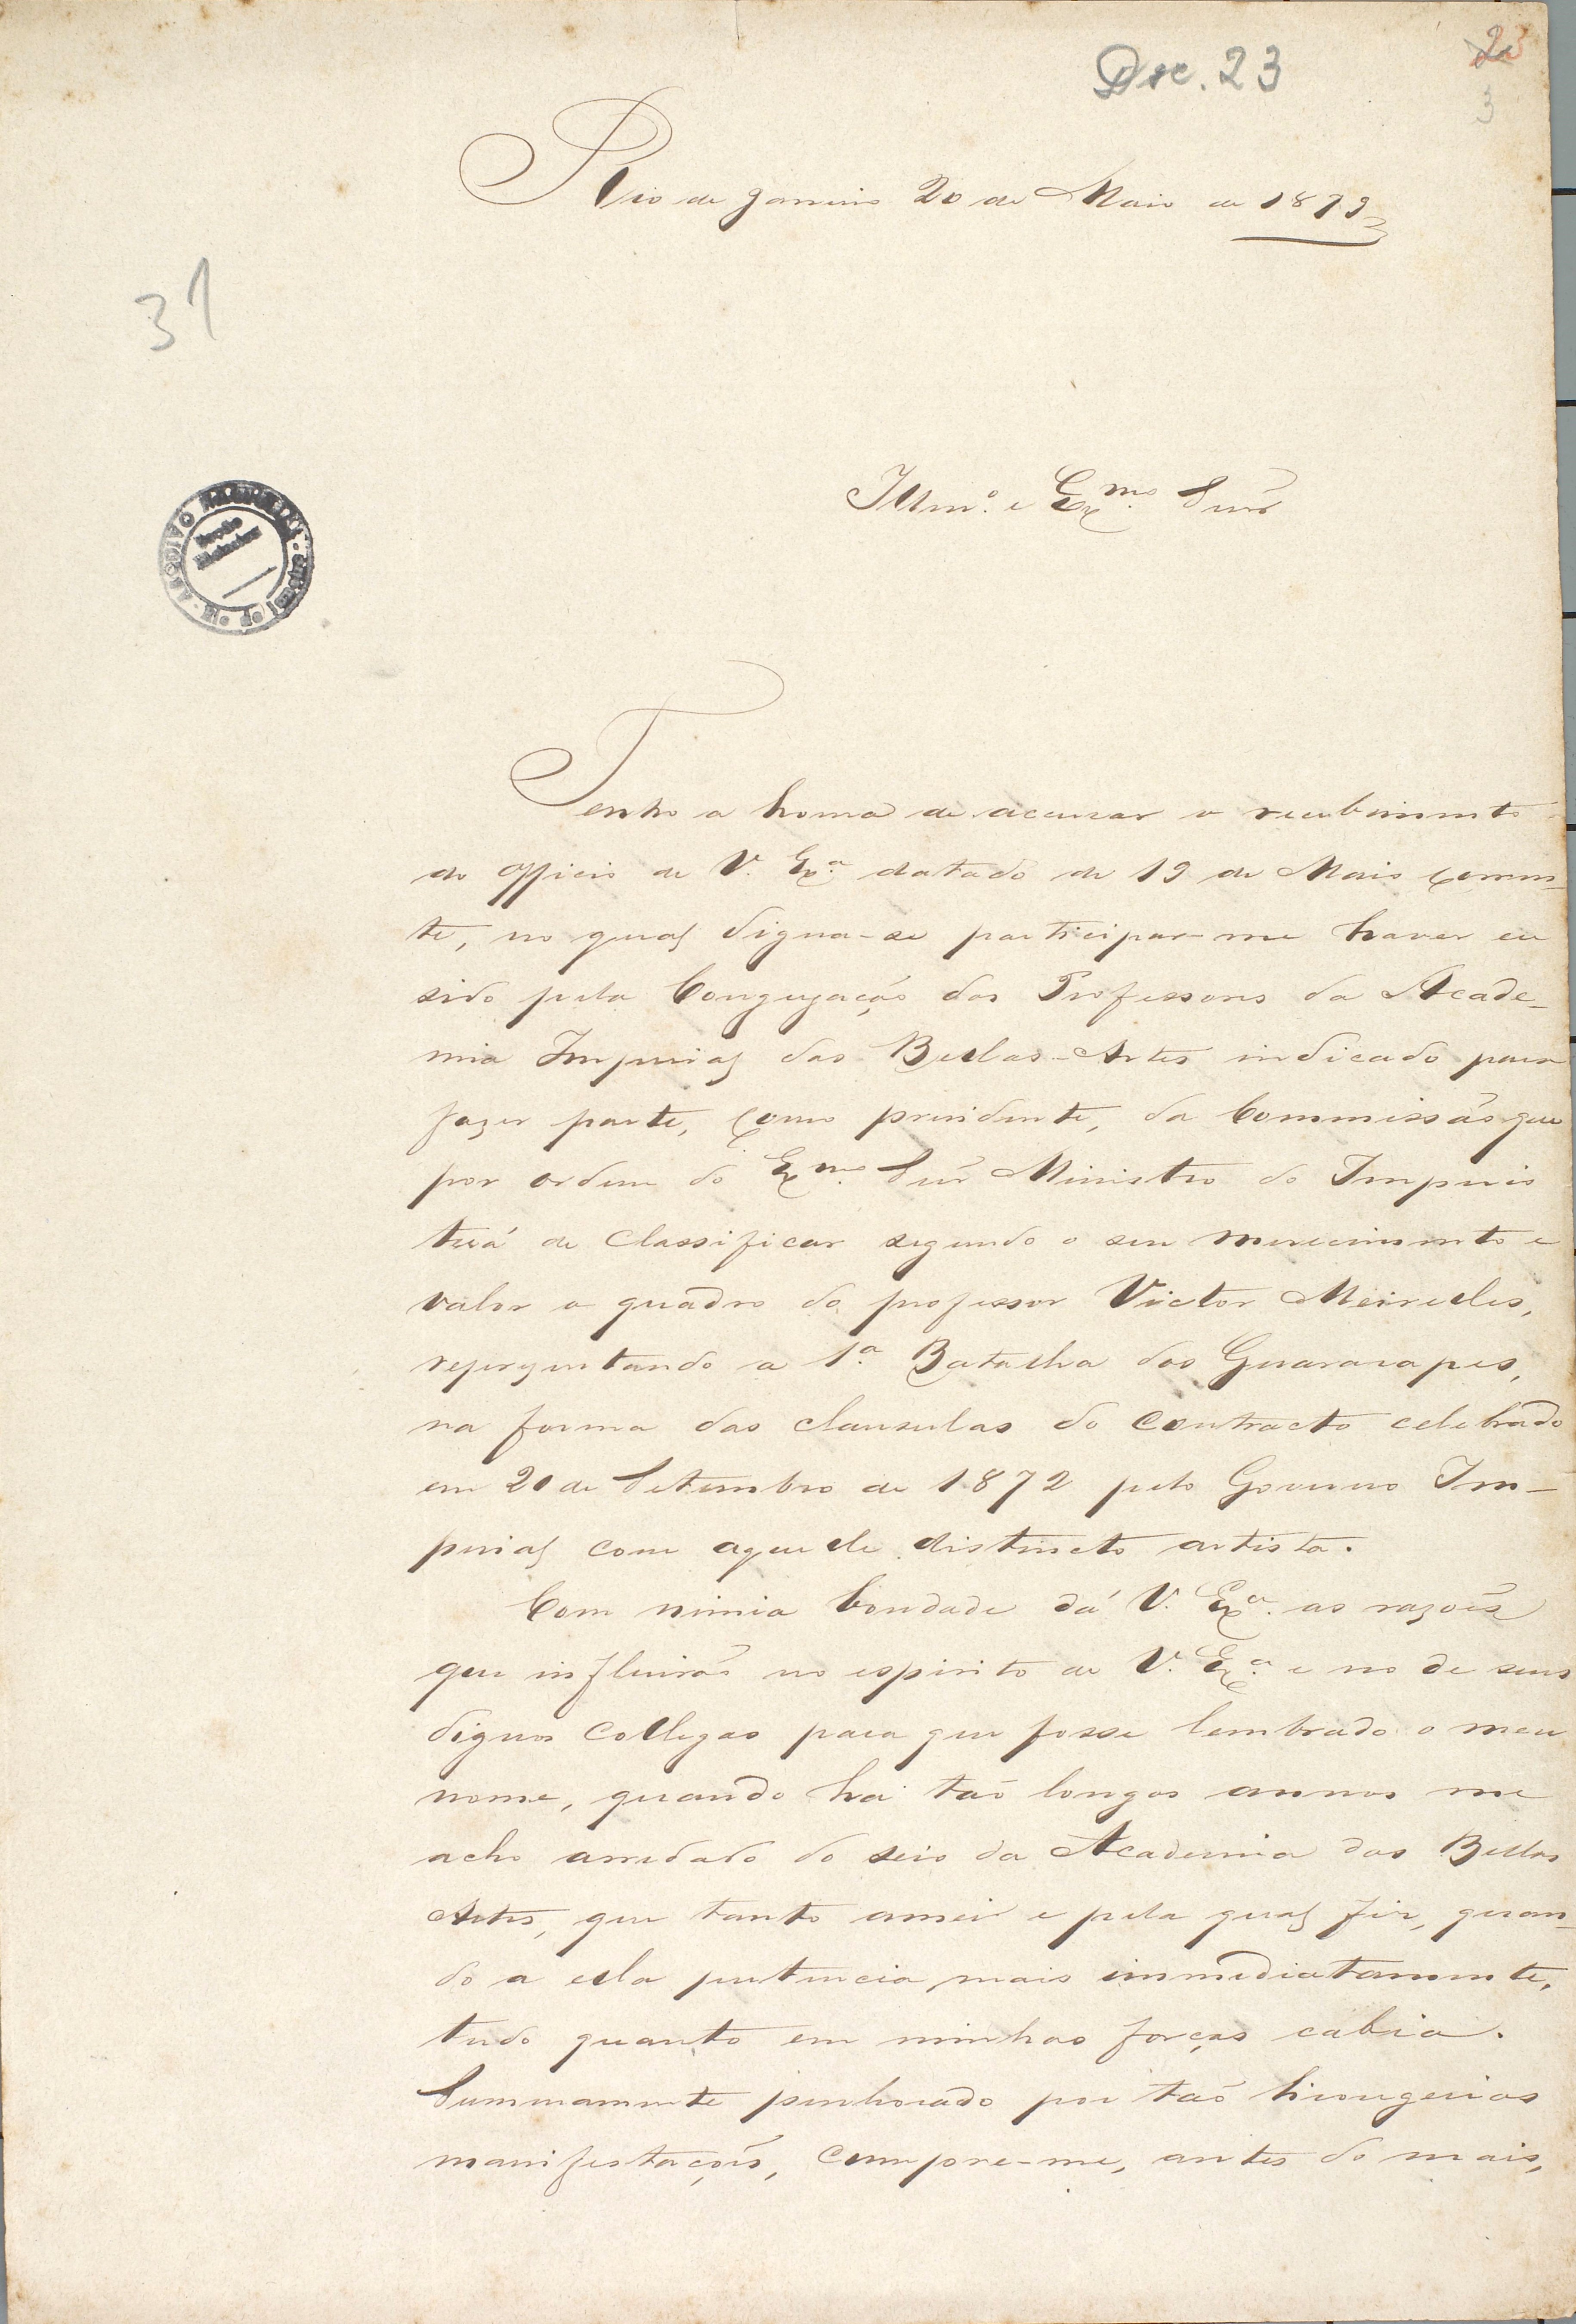 Doc. 23
23
3
Rio de Janeiro 20 de Maio de 1879
31
Illmº. e Exmº. Snr̃
Tenho a honra de accusar o recebimento
do officio de V. Exª. datado de 19 de Maio corren-
te, no qual digna-se participar-me haver eu
sido pela Congregação dos Professores da Acade-
mia Imperial das Bellas-Artes indicado para
fazer parte, como presidente, da Commissão que
por ordem do Exmº. Snr̃ Ministro do Imperio
terá de classificar segundo o seu merecimento e
valor o quadro do professor Victor Meirelles,
representando a 1ª. Batalha dos Guararapes,
na forma das clausulas do contracto celebrado
em 20 de Setembro de 1872 pelo Governo Im-
perial com aquelle distincto artista.
Com nimia bondade dá V. Exª. as razões
que influirão no espirito de V. Exª. e no de seus
dignos collegas para que fosse lembrado o meu
nome, quando ha tão longos annos me
acho arredado do seio da Academia das Bellas
Artes, que tanto amei e pela qual fiz, quan-
do a ella pertencia mais immediatamente,
tudo quanto em minhas forças cabia.
Summamente penhorado por tão lisongeiras
manifestações, cumpre-me, antes do mais,